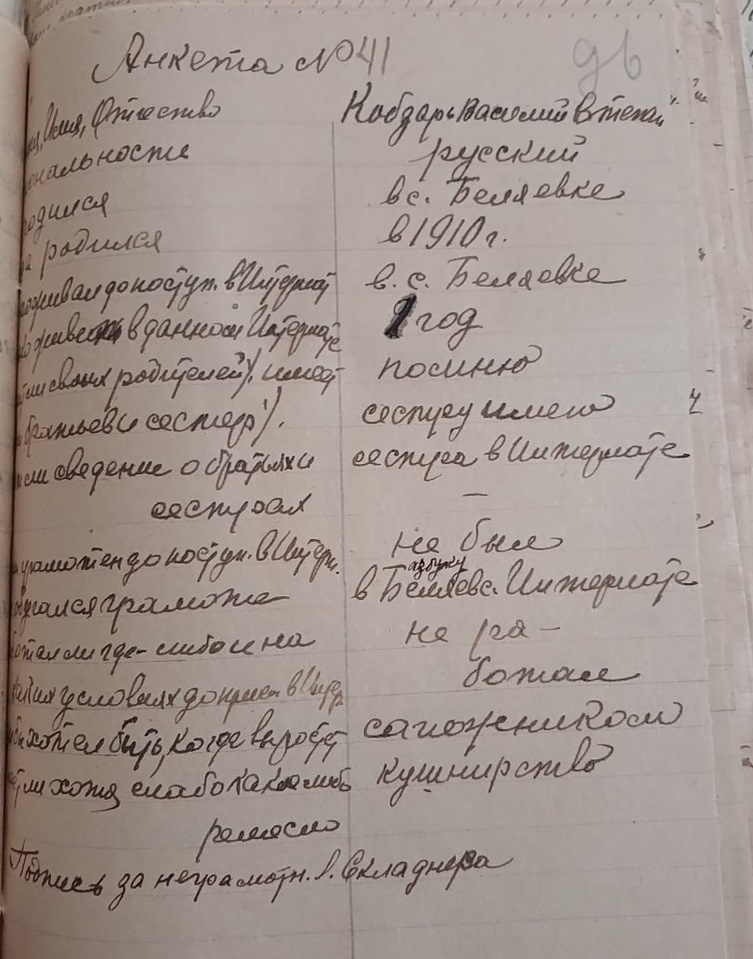 Анкета №41
Имя, Отчество Кобзарь Василий Степан
ональность русский
одился в с. Беляевке
а родился в 1910 г.
роживал до поступ. в Интернат в. с. Беляевке
в данном Интернате 1 год
ли своих родителей), имеет помню
братьев и сестер). сестру имею
сли сведение о братьях и сестра в Интернате
сестрах –
грамотен до поступ. в Интерн. не был
азбуку
бучался грамоте в Беляевс. Интернате
ботал ли где-либо и на не ра-
аких условиях до прием в Интер ботал
бы хотел быть, когда вырастет сапожником
ли хотя слабо какое либо кушнирство
ремесло
Подпись за неграмотн. Л. Складнера